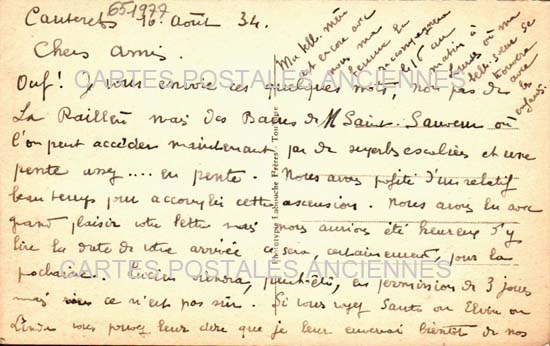 651977
Cauterets 10. Août 34.
Chers Amis.
Ouf! Je vous envoie ces quelques mots, non pas de
La Raillère mais des Bains de St Saint-Sauveur où
l'on peut accéder maintenant par de superbes escaliers et une
pente assez .... en pente. Nous avons profité d'un relatif
beau temps pour accomplir cette ascension. Nous avons lu avec
grand plaisir votre lettre mais nous aurions été heureux d'y
lire la date de votre arrivée ce sera, certainement, pour la
prochaine. Lucien viendra, peut-être, en permission de 3 jours
mais ce n'est pas sûr. Si vous voyez ou
Linda vous pouvez leur dire que je leur enverrai bientôt de nos
Ma bell. mère
est encore avec
ma
femme la
raccompagnera
le 16 au
matin à
où ma
bell. soeur se
trouvera
avec les
enfants.
Phototypie Labouche Frères - Toulouse
CARTES POSTALES ANCIENNES
CARTES POSTALES ANCIENNES